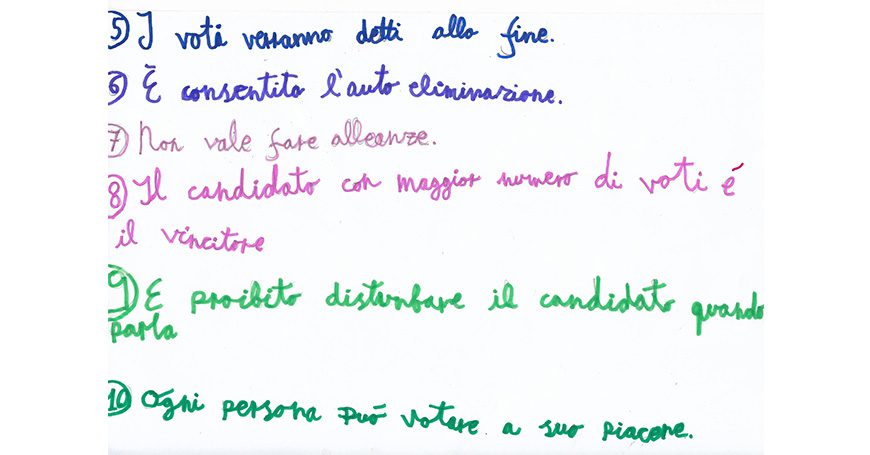 5) I voti verranno detti alla fine.
6) È consentito l'auto eliminazione.
7) Non vale fare alleanze.
8) Il candidato con maggior numero di voti é
il vincitore
9) E proibito disturbare il candidato quando
parla
10) Ogni persona può votare a suo piacere.